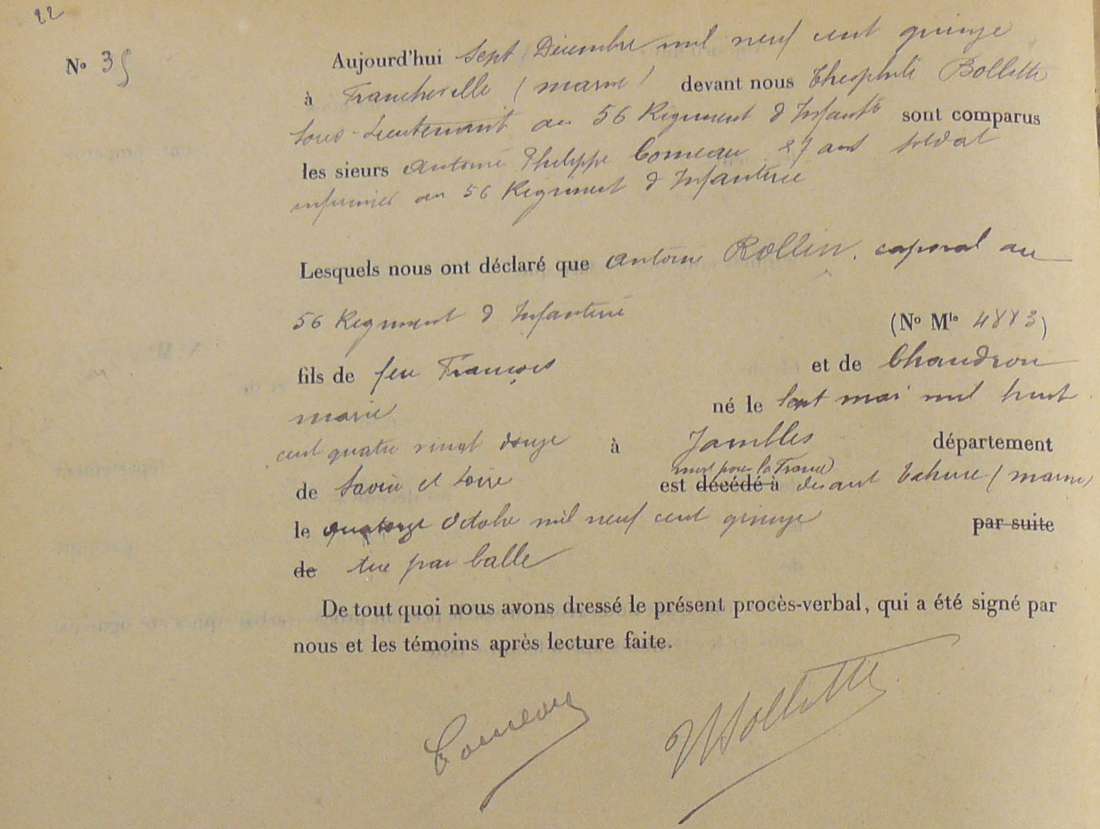 22
N° 35
Aujourd'hui sept Décembre mil neuf cent quinze
à Francheville (marne) devant nous Théophile Bollette
sous-Lieutenant au 56 Regiment d Infantie sont comparus
les sieurs Antoine Philippe Comeau 27 ans soldat
infirmier au 56 Regiment d Infanterie
Lesquels nous ont déclaré que Antoine Rollin, caporal au
56 Regiment d Infanterie (N° Mle 4883)
fils de feu François et de Chaudron
marie né le sept mai mil huit
cent quatre vingt douze à Jambles département
de Saône et Loire est décédé à mort pour la France devant Tahure (marne)
le quatorze Octobre mil neuf cent quinze par suite
de tué par balle
De tout quoi nous avons dressé le présent procès-verbal, qui a été signé par
nous et les témoins après lecture faite.
Comeau Bollette